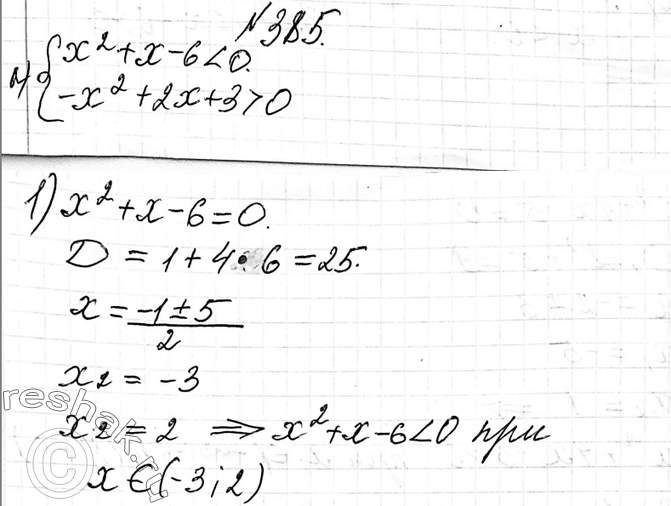 №385.
а) { x² + x - 6 < 0.
-x² + 2x + 3 > 0
1) x² + x - 6 = 0.
D = 1 + 4 · 6 = 25.
x = (-1 ± 5) / 2
x₁ = -3
x₂ = 2 ⇒ x² + x - 6 < 0 при
x ∈ (-3; 2)
reshak.ru